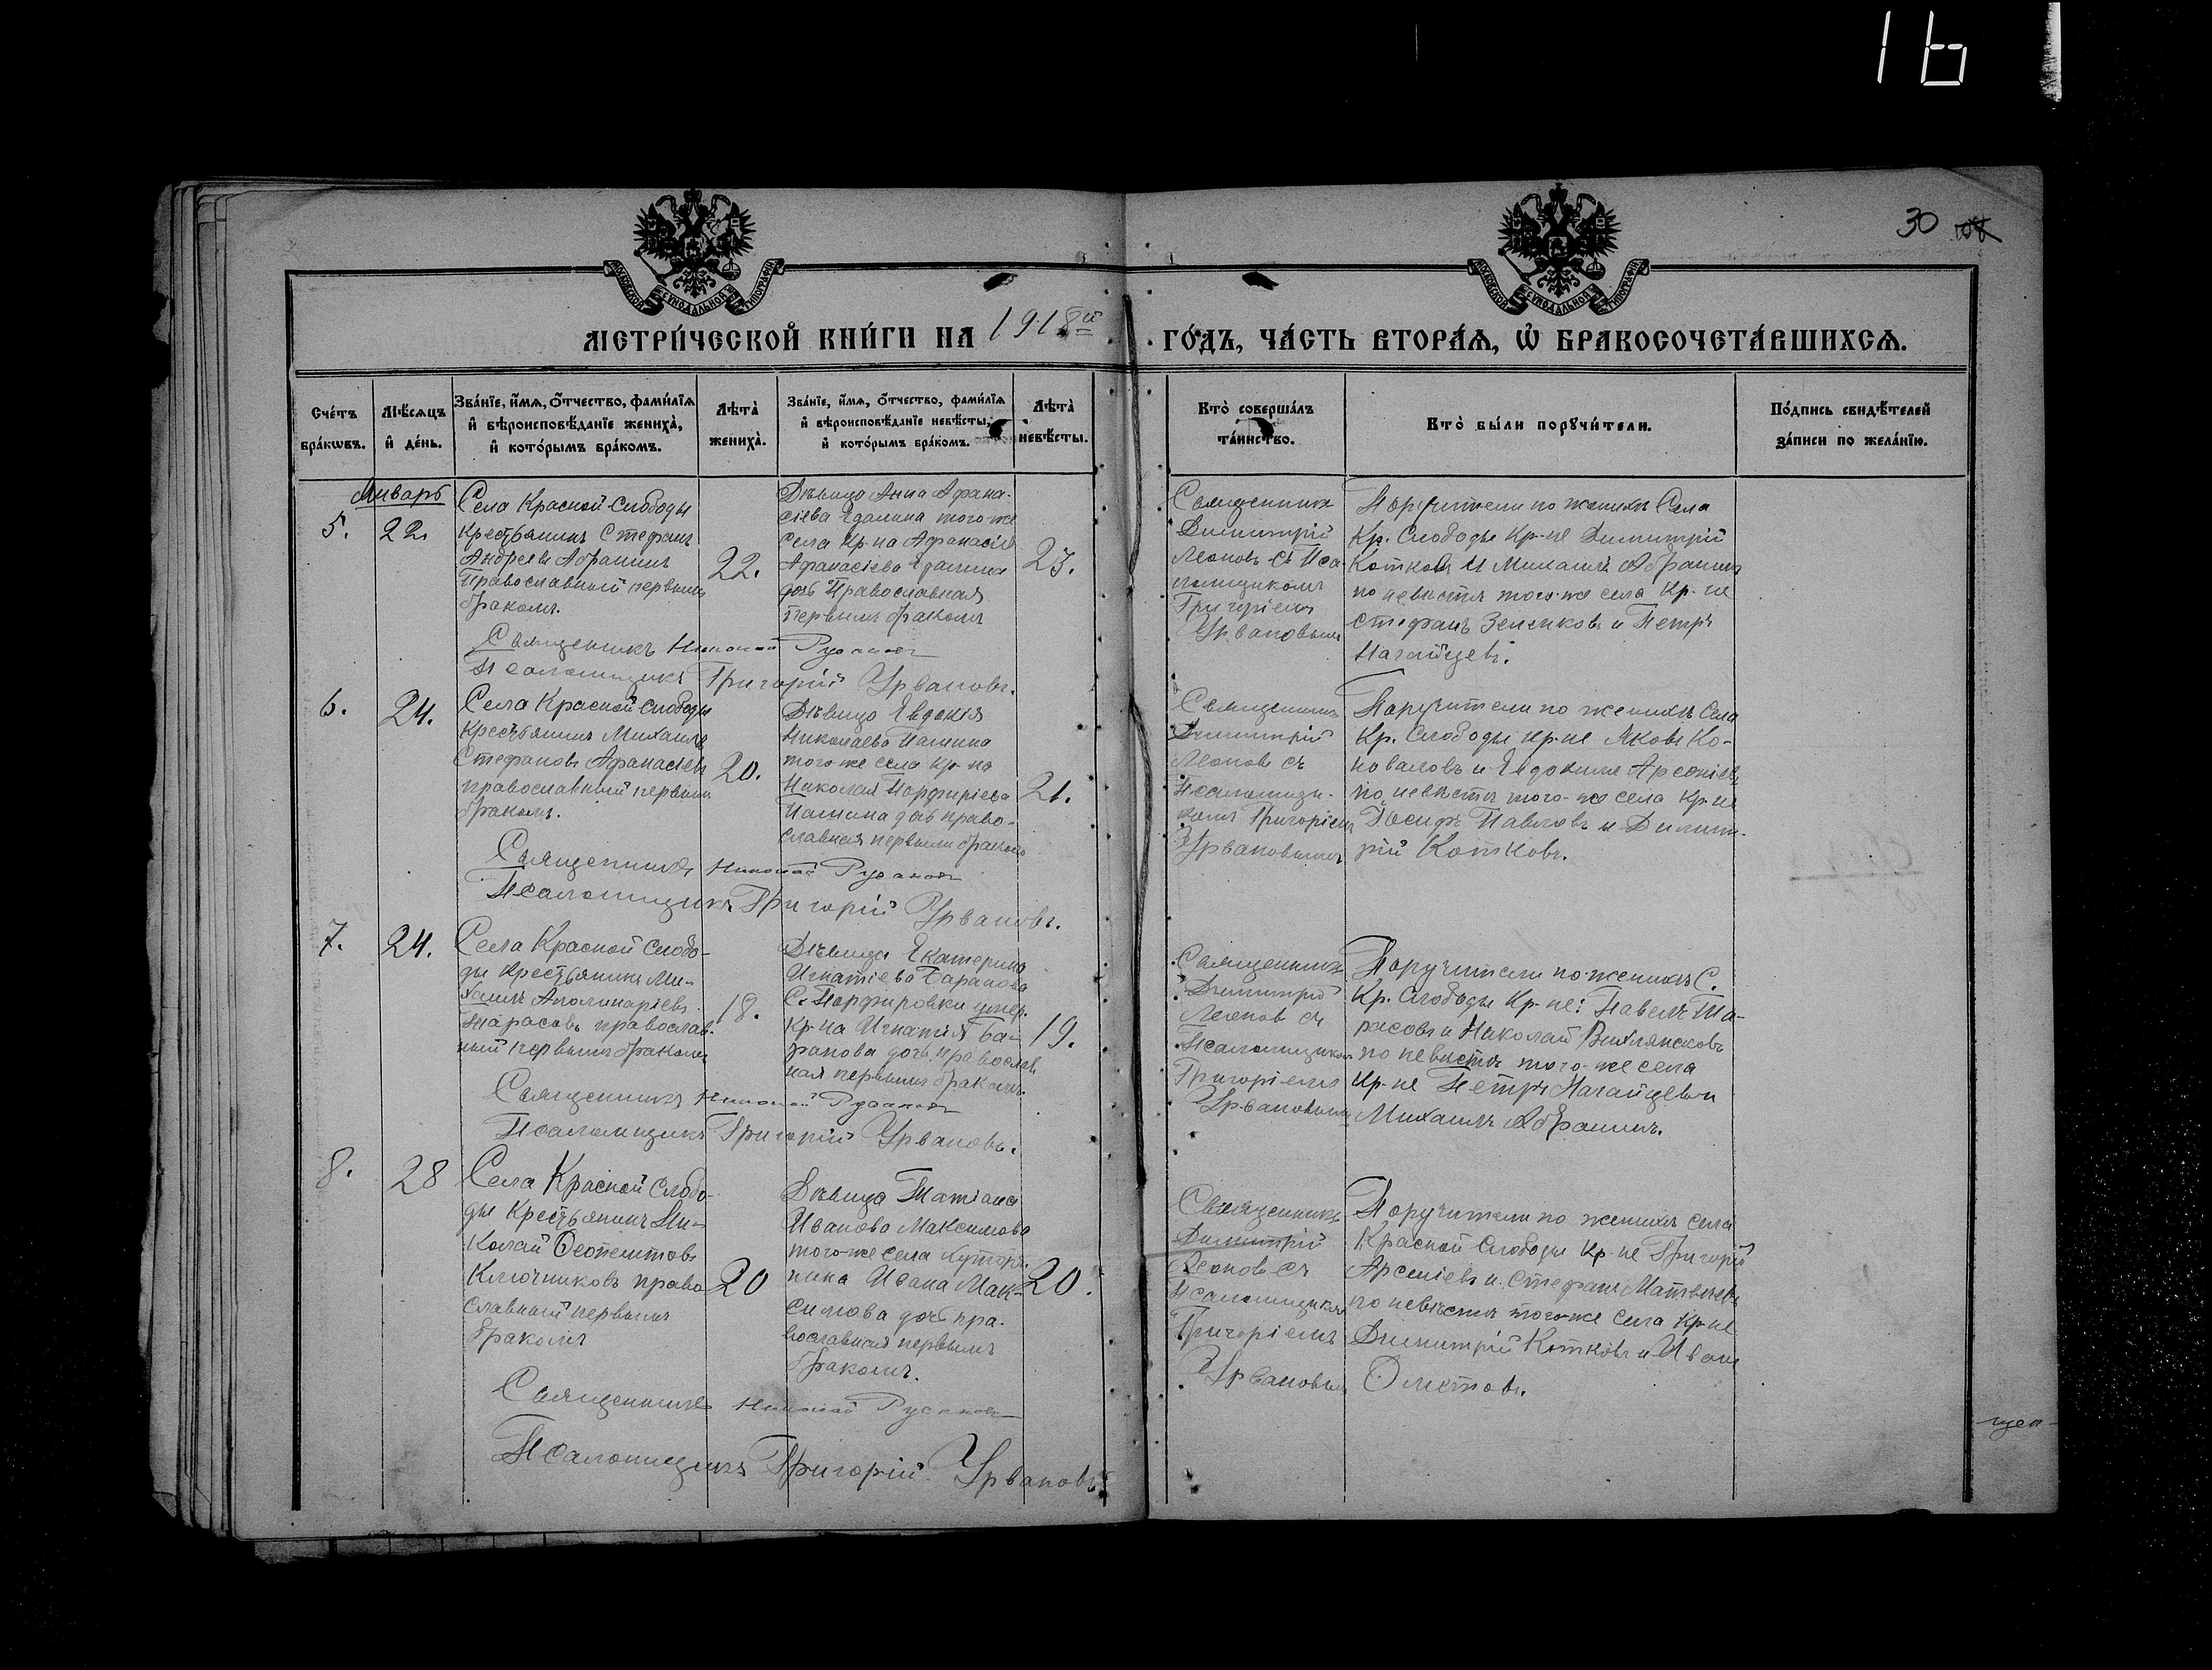 16
30
МОСКОВСКОЙ СѴНОДАЛЬНОЙ ТИПОГРАФІИ
МОСКОВСКОЙ СѴНОДАЛЬНОЙ ТИПОГРАФІИ
МЕТРИ́ЧЕСКОЙ КНИ́ГИ НА 1918й
ГО́ДЪ, ЧА́СТЬ ВТОРА́Ѧ, Ѡ БРАКОСОЧЕТА́ВШИХСѦ.
Сче́тъ
бра́кѡвъ.
Мѣ́сѧцъ
и҆ де́нь.
Зва́нїе, и҆́мѧ, ѻ҆́тчество, фами́лїѧ
и҆ вѣроисповѣ́данїе жениха̀,
и҆ кото́рымъ бра́комъ.
Лѣта̀
жениха̀.
Зва́нїе, и҆́мѧ, ѻ҆́тчество, фами́лїѧ
и҆ вѣроисповѣ́данїе невѣ́сты,
и҆ кото́рымъ бра́комъ.
Лѣта̀
невѣ́сты.
Кто̀ соверша́лъ
та́инство.
Кто̀ бы́ли порꙋчи́тели.
По́дпись свидѣ́телей
за́писи по жела́нїю.
Январь
5.
22.
Села Красной Слободы
Крестьянинъ Стефанъ
Андреевъ Абраминъ
Православный первымъ
бракомъ.
22.
Дѣвица Анна Афана-
сіева того-же
села Кр-на Афанасія
Афанасіева
дочь Православная
первымъ бракомъ
23.
Священникъ
Димитрій
Леоновъ съ Пса-
ломщикомъ
Григоріемъ
Урвановымъ
Поручители по женихѣ Села
Кр. Слободы Кр-не Димитрій
Котковъ и Михаилъ Абраминъ
по невѣстѣ того-же села Кр-не
Стефанъ Зеленковъ и Петръ
Нагайцевъ.
Священникъ Николай Русанов
Псаломщикъ Григорій Урвановъ.
6.
24.
Села Красной Слободы
Крестьянинъ Михаилъ
Стефановъ Афанасіевъ
православный первымъ
бракомъ.
20.
Дѣвица Евдокія
Николаева Пашина
того-же села Кр-на
Николая Порфиріева
Пашина дочь право-
славная первымъ бракомъ
21.
Священникъ
Димитрій
Леоновъ съ
Псаломщи-
комъ Григоріемъ
Урвановымъ
Поручители по женихѣ Села
Кр. Слободы кр-не Яковъ Ко-
новаловъ и Евдокимъ Арсеніевъ,
по невѣстѣ того-же села Кр-не
Іосифъ Павловъ и Димит-
рій Котковъ.
Священникъ Николай Русанов
Псаломщикъ Григорій Урвановъ.
7.
24.
Села Красной Слобо-
ды Крестьянинъ Ми-
хаилъ Аполинаріевъ
Тарасовъ православ-
ный первымъ бракомъ
18.
Дѣвица Екатерина
Игнатіева Баранова
С. Порфировки умер.
Кр-на Игнатія Ба-
ранова дочь православ
ная первымъ бракомъ.
19.
Священникъ
Димитрій
Леоновъ съ
Псаломщикомъ
Григоріемъ
Урвановымъ
Поручители по женихѣ С.
Кр. Слободы Кр-не: Павелъ Та-
расовъ и Николай
по невѣстѣ того-же села
Кр-не Петръ Нагайцевъ и
Михаилъ Абраминъ.
Священникъ Николай Русанов
Псаломщикъ Григорій Урвановъ.
8.
28
Села Красной Слобо-
ды Крестьянинъ Ни-
колай Ѳеопемптовъ
Ключниковъ право
славный первымъ
бракомъ
20
Дѣвица Татіана
Иванова Максимова
того-же села
Ивана Мак-
симова дочь пра-
вославная первымъ
бракомъ.
20.
Священникъ
Димитрій
Леоновъ съ
Псаломщикомъ
Григоріемъ
Урвановымъ
Поручители по женихѣ села
Красной Слободы Кр-не Григорій
Арсеніевъ и Стефанъ Матвѣевъ
по невѣстѣ того-же села Кр-не
Димитрій Котковъ и Иванъ
Ѳилатовъ.
Священникъ Николай Русанов
Псаломщикъ Григорій Урвановъ